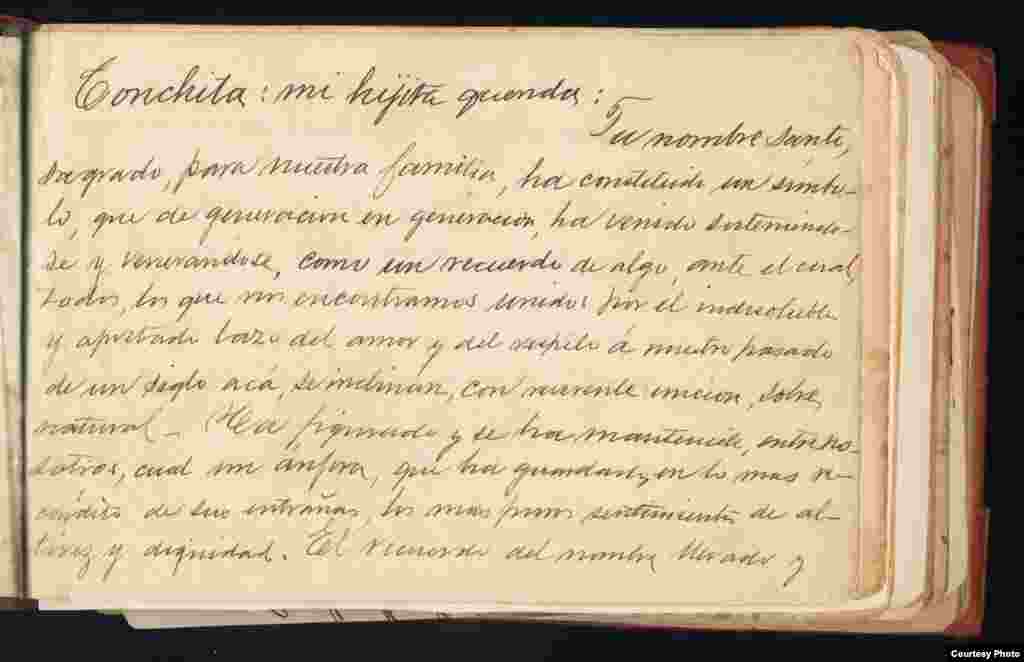 Conchita: mi hijita querida:
Tu nombre santo,
sagrado, para nuestra familia, ha constituido un simbo-
lo, que de generacion en generacion, ha venido sosteniendo-
se y venerandose, como un recuerdo de algo, ante el cual,
todos, los que nos encontramos unidos por el indisoluble
y apretado lazo del amor y del respeto á nuestro pasado
de un siglo acá, se inclinan, con reverente uncion, sobre
natural - Ha figurado y se ha mantenido, entre no-
sotros, cual un ánfora, que ha guardado, en lo mas re-
cóndito de sus entrañas, los mas puros sentimientos de al-
tivez y dignidad. El recuerdo del nombre llevado y
Courtesy Photo